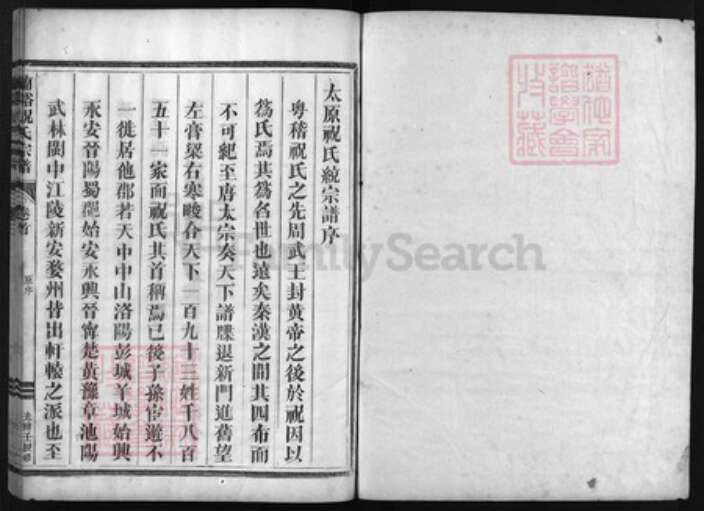 太原祝氏統宗譜序
粵稽祝氏之先周武王封黃帝之後於祝因以
爲氏焉其爲名世也遠矣秦漢之間其四布而
不可紀至唐太宗奏天下譜牒退新門進舊望
左膏粱右寒畯合天下二百九十三姓千八百
五十一家而祝氏其首稱焉已後子孫宦遊不
一徙居他郡若天中中山洛陽彭城羊城始興
永安晉陽蜀郡始安永興晉甯楚黃豫章池陽
武林閩中江陵新安婺州皆出軒轅之派也至
祝氏宗譜
卷首
原序
FamilySearch
譜學會
收藏